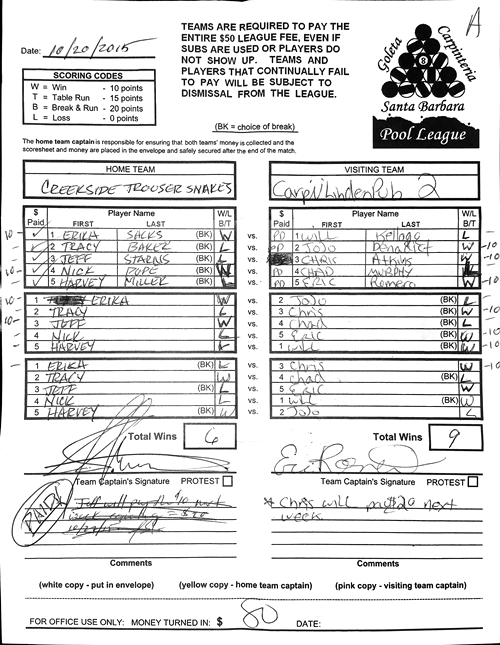 A
TEAMS ARE REQUIRED TO PAY THE
ENTIRE $50 LEAGUE FEE, EVEN IF
SUBS ARE USED OR PLAYERS DO
NOT SHOW UP. TEAMS AND
PLAYERS THAT CONTINUALLY FAIL
TO PAY WILL BE SUBJECT TO
DISMISSAL FROM THE LEAGUE.
(BK = choice of break)
Date: 10/20/2015
SCORING CODES
W = Win - 10 points
T = Table Run - 15 points
B = Break & Run - 20 points
L = Loss - 0 points
Goleta
Carpinteria
8
Santa Barbara
Pool League
The home team captain is responsible for ensuring that both teams' money is collected and the
scoresheet and money are placed in the envelope and safely secured after the end of the match.
HOME TEAM
CREEKSIDE TROUSER SNAKES
VISITING TEAM
Carp/LindenPub 2
$ Paid Player Name FIRST LAST W/L B/T
$ Paid Player Name FIRST LAST W/L B/T
10 1 ERIKA SACKS (BK) W vs. PD 1 Will Kellogg L
2 TRACY BAKER (BK) L vs. PD 2 JoJo W -10
3 JEFF STARNS (BK) L vs. 3 CHRIS Atkins W -10
10 4 NICK POPE (BK) W vs. PD 4 CHAD MURPHY L
5 HARVEY MILLER (BK) L vs. PD 5 Eric Romero W -10
10 1 ERIKA W vs. 2 JoJo (BK) L
2 TRACY L vs. 3 Chris (BK) W -10
10 3 JEFF W vs. 4 Chad (BK) L
4 NICK L vs. 5 Eric (BK) W -10
5 HARVEY L vs. 1 Will (BK) W -10
1 ERIKA (BK) L vs. 3 Chris W -10
2 TRACY (BK) W vs. 4 Chad L
3 JEFF (BK) L vs. 5 Eric W
4 NICK (BK) L vs. 1 Will W
5 HARVEY (BK) W vs. 2 JoJo L
Total Wins 6
Total Wins 9
Team Captain's Signature PROTEST
Team Captain's Signature PROTEST
PAID
Jeff will pay the $10 next
week
* Chris will pay $20 next
week.
Comments
Comments
(white copy - put in envelope) (yellow copy - home team captain) (pink copy - visiting team captain)
FOR OFFICE USE ONLY: MONEY TURNED IN: $ 80 DATE: